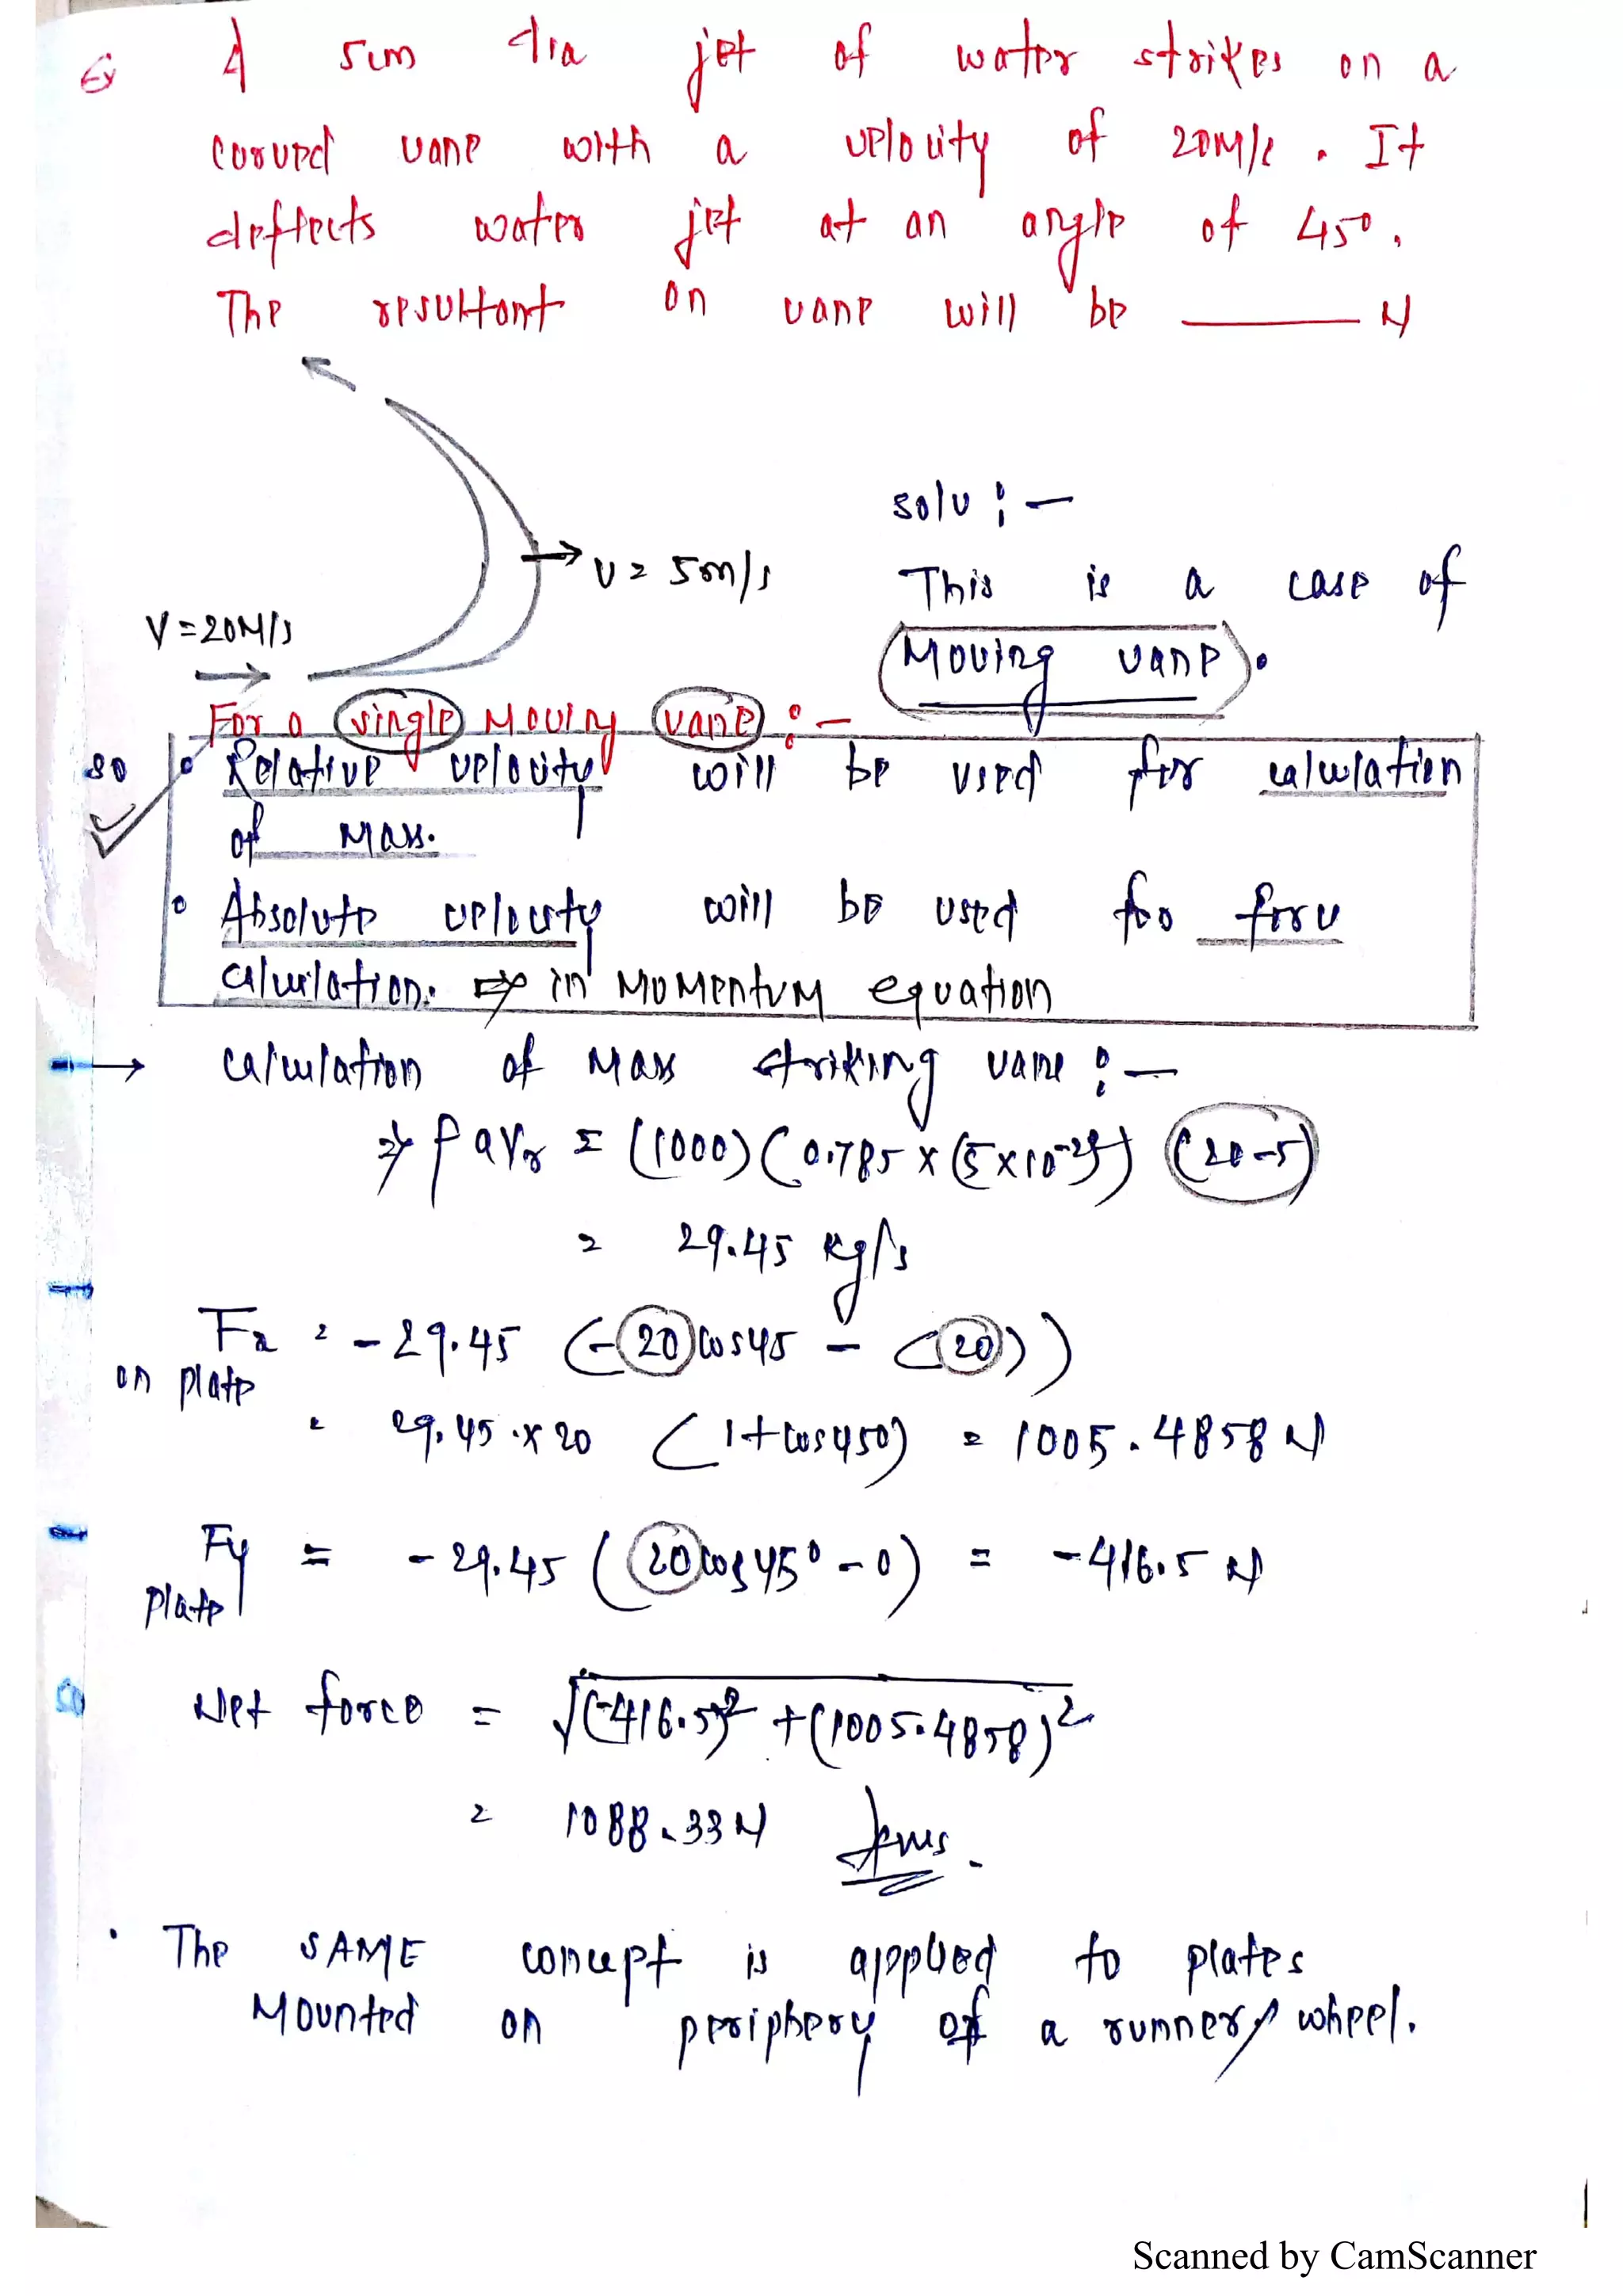 Ex A 5cm dia jet of water strikes on a
curved vane with a velocity of 20M/s. It
deflects water jet at an angle of 45°.
The resultant on vane will be ______ N
V = 20M/s
U = 5m/s
solu :-
This is a case of
Moving vane.
For a single Moving vane :-
so • Relative velocity will be used for calculation
of mass.
• Absolute velocity will be used for force
calculation. ⇒ in MOMentuM equation
→ calculation of mass striking vane :-
⇒ ρ a Vr = (1000) (0.785 × (5×10⁻²)²) (20-5)
= 29.45 kg/s
Fx on plate = -29.45 (-20 cos45 - (20))
= 29.45 × 20 (1+cos45°) = 1005.4858 N
Fy plate = -29.45 (20cos45° - 0) = -416.5 N
Net force = √(-416.5)² + (1005.4858)²
= 1088.33 N Ans.
• The SAME concept is applied to plates
Mounted on periphery of a runner/wheel.
Scanned by CamScanner